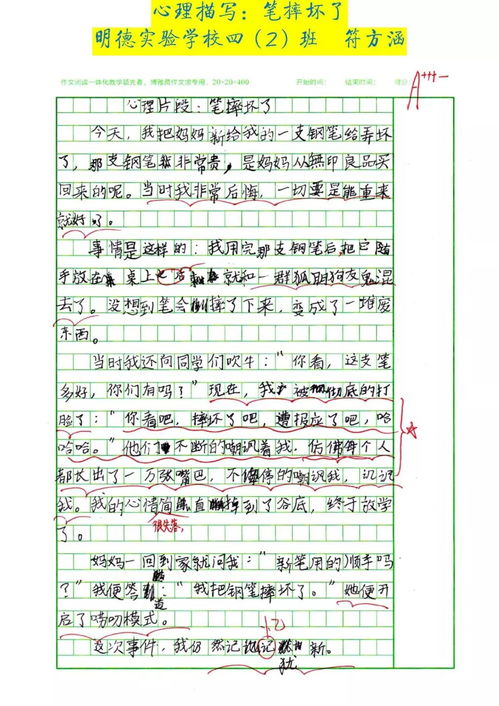 心理描写：笔摔坏了
明德实验学校四（2）班 符方涵
作文阅读一体化教学领先者，博雅苑作文馆专用，20×20=400 开始时间： 结束时间： 得分
A+++-
心理片段：笔摔坏了
今天，我把妈妈新给我的一支钢笔给弄坏
了，那支钢笔非常贵，是妈妈从無印良品买
回来的呢。当时我非常后悔，一切要是能重来
就好了。
事情是这样的：我用完那支钢笔后，把它随
手放在桌上，就和一群狐朋狗友鬼混
去了。没想到笔会摔了下来，变成了一堆废
东西。
当时我还向同学们吹牛：“你看，这支笔
多好，你们有吗？”现在，我被彻底的打
脸了：“你看吧，摔坏了吧，遭报应了吧，哈
哈哈。”他们不断的嘲讽着我，仿佛每个人
都长出了一万张嘴巴，不停的嘲讽我，讥讽
我。我的心情简直掉到了谷底，终于放学
很失落，
了。
妈妈一回到家就问我：“新笔用的顺手吗
？”我便答道：“我把钢笔摔坏了。”她便开
启了唠叨模式。
这次事件，我仍然记忆犹新。